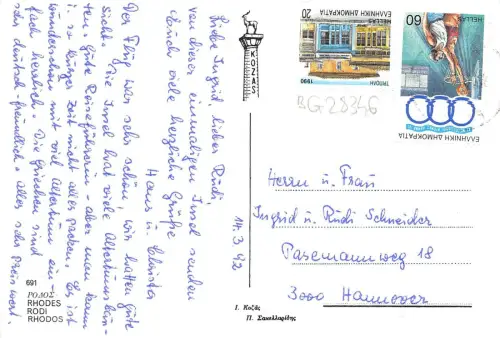 Liebe Ingrid, lieber Rudi,
von dieser einmaligen Insel senden
Euch viele herzliche Grüße
Hans u. Christa
14.3.92
Der Flug war sehr schön, wir hatten gute
Sicht. Die Insel hat viele
Eine gute Reiseführerin - aber man kann
i. so kurzer Zeit nicht alles packen. Es ist
wunderschön mit viel Altertum ein-
fach herrlich. Die Griechen sind
sehr deutsch-freundlich - alles sehr preiswert.
691
ΡΟΔΟΣ
RHODES
RODI
RHODOS
KOZAS
Γ. Κοζάς
Π. Σακελλαρίδης
20
ΕΛΛΗΝΙΚΗ ΔΗΜΟΚΡΑΤΙΑ
HELLAS
1990
60
HELLAS
ΕΛΛΗΝΙΚΗ ΔΗΜΟΚΡΑΤΙΑ
BG28346
Herrn u. Frau
Ingrid u. Rudi Schneider
Pasemannweg 18
3000 Hannover